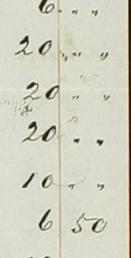 6 " "
20 " "
20 " "
20 " "
10 " "
6 50